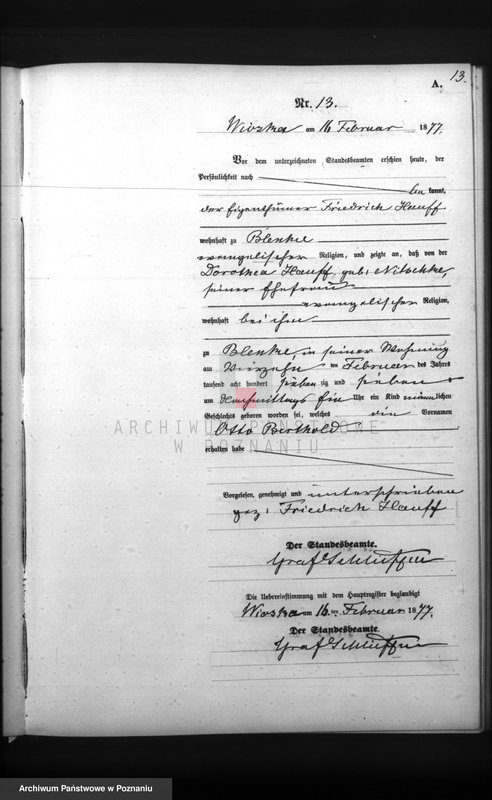 13.
A.
Nr. 13.
Wioska am 16 Februar 1877.
Vor dem unterzeichneten Standesbeamten erschien heute, der
Persönlichkeit nach
kannt,
der Eigenthümer Friedrich Hauff
wohnhaft zu Blenke
evangelischer Religion, und zeigte an, daß von der
Dorothea Hauff, geb: Nitschke,
seiner Ehefrau
evangelischer Religion,
wohnhaft bei ihm
zu Blenke, in seiner Wohnung
am Vierzehn ten Februar des Jahres
tausend acht hundert sieben zig und sieben
um Nachmittags Uhr ein Kind männlichen
Geschlechts geboren worden sei, welches die Vornamen
Otto Berthold
erhalten habe
Vorgelesen, genehmigt und unterschrieben
gez: Friedrich Hauff
Der Standesbeamte.
Graf
Die Uebereinstimmung mit dem Hauptregister beglaubigt
Wioska am 16 ten Februar 1877.
Der Standesbeamte.
Graf
ARCHIWUM PAŃSTWOWE
W POZNANIU
Archiwum Państwowe w Poznaniu